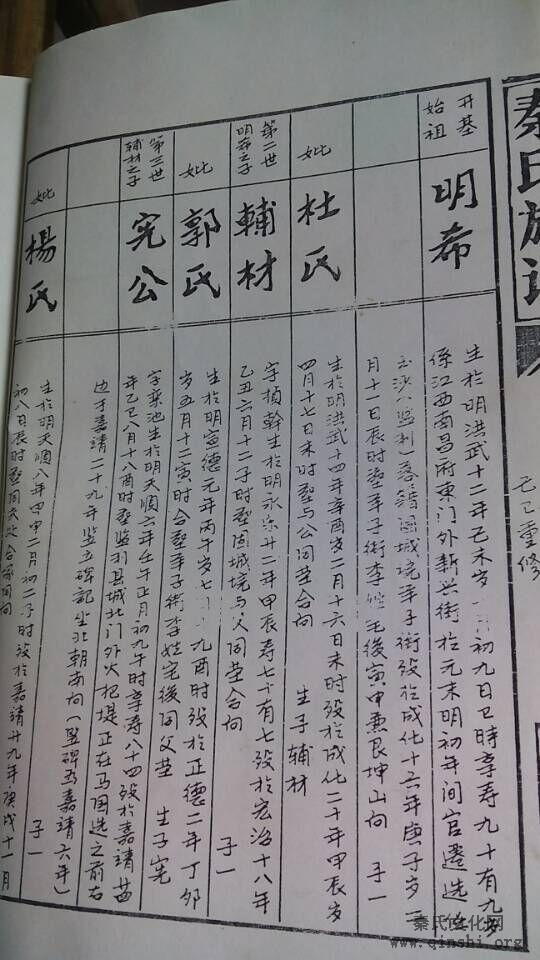 秦氏族谱
己巳重修
开基
始祖
明希
生於明洪武十二年己未岁 初九日巳時享寿九十有九岁
係江西南昌府東门外新兴街於元末明初年间官遷选
玉沙(监利)落籍围城境羊子街殁於成化十六年庚子岁二
月十一日辰时塟羊子街李 宅後寅甲兼艮坤山向 子一
妣
杜氏
生於明洪武十四年辛酉岁二月十六日未时殁於成化二十年甲辰岁
四月十七日未时塟与公同茔合向 生子辅材
第二世
明希之子
輔材
字楨幹生於明永乐廿二年甲辰寿七十有七殁於宏治十八年
乙丑六月十二子时塟围城境与父同茔合向 子一
妣
郭氏
生於明宣德元年丙午岁七 九酉时殁於正德二年丁卯
岁五月十二寅时合塟羊子街李姓宅後同父茔 生子宪
第三世
辅材之子
宪公
字 池生於明天顺六年壬午正月初九午时享寿八十四殁於嘉靖廿
年乙巳八月十八酉时塟监利县城北门外火把堤正在马国选之前右
边于嘉靖二十九年竖立碑記坐北朝南向(竖碑为嘉靖六年)
子一
妣
楊氏
生於明天顺八年甲申二月初二子时殁於嘉靖廿九年庚戌十一月
初八日辰时塟同夫处合冢同向
秦氏文化网
www.qinshi.org